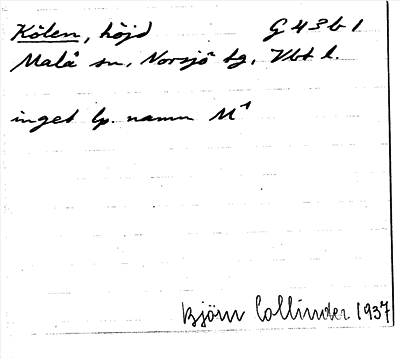 Kölen, höjd G 43 b 1
Malå sn, Norsjö tg, Vbt l.
inget lp. namn M¹
Björn Collinder 1937